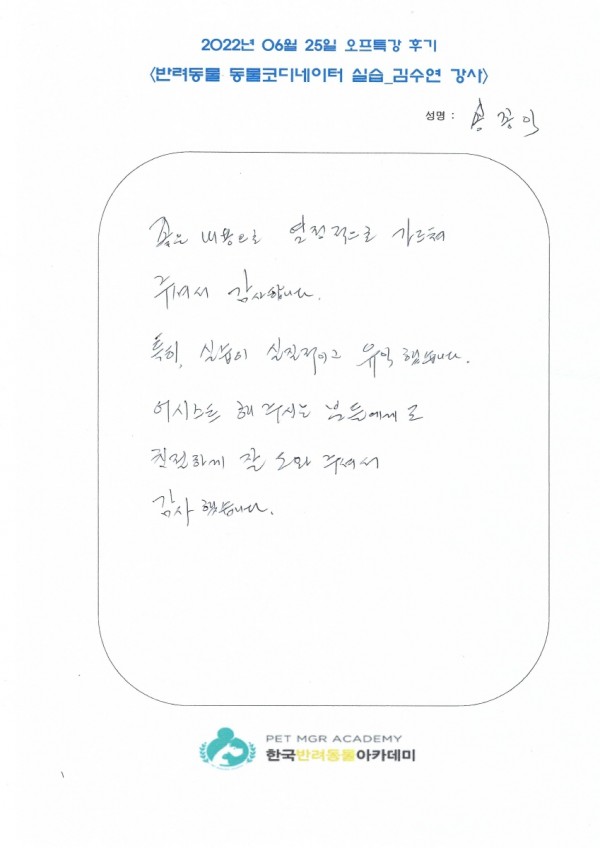 2022년 06월 25일 오프특강 후기
<반려동물 동물코디네이터 실습_김수연 강사>
성명 :
좋은 내용으로 열정적으로 가르쳐
주셔서 감사합니다.
특히, 실습이 실질적이고 유익했습니다.
어시스트 해 주시는 분들에게도
친절하게 잘 도와 주셔서
감사했습니다.
PET MGR ACADEMY
한국반려동물아카데미